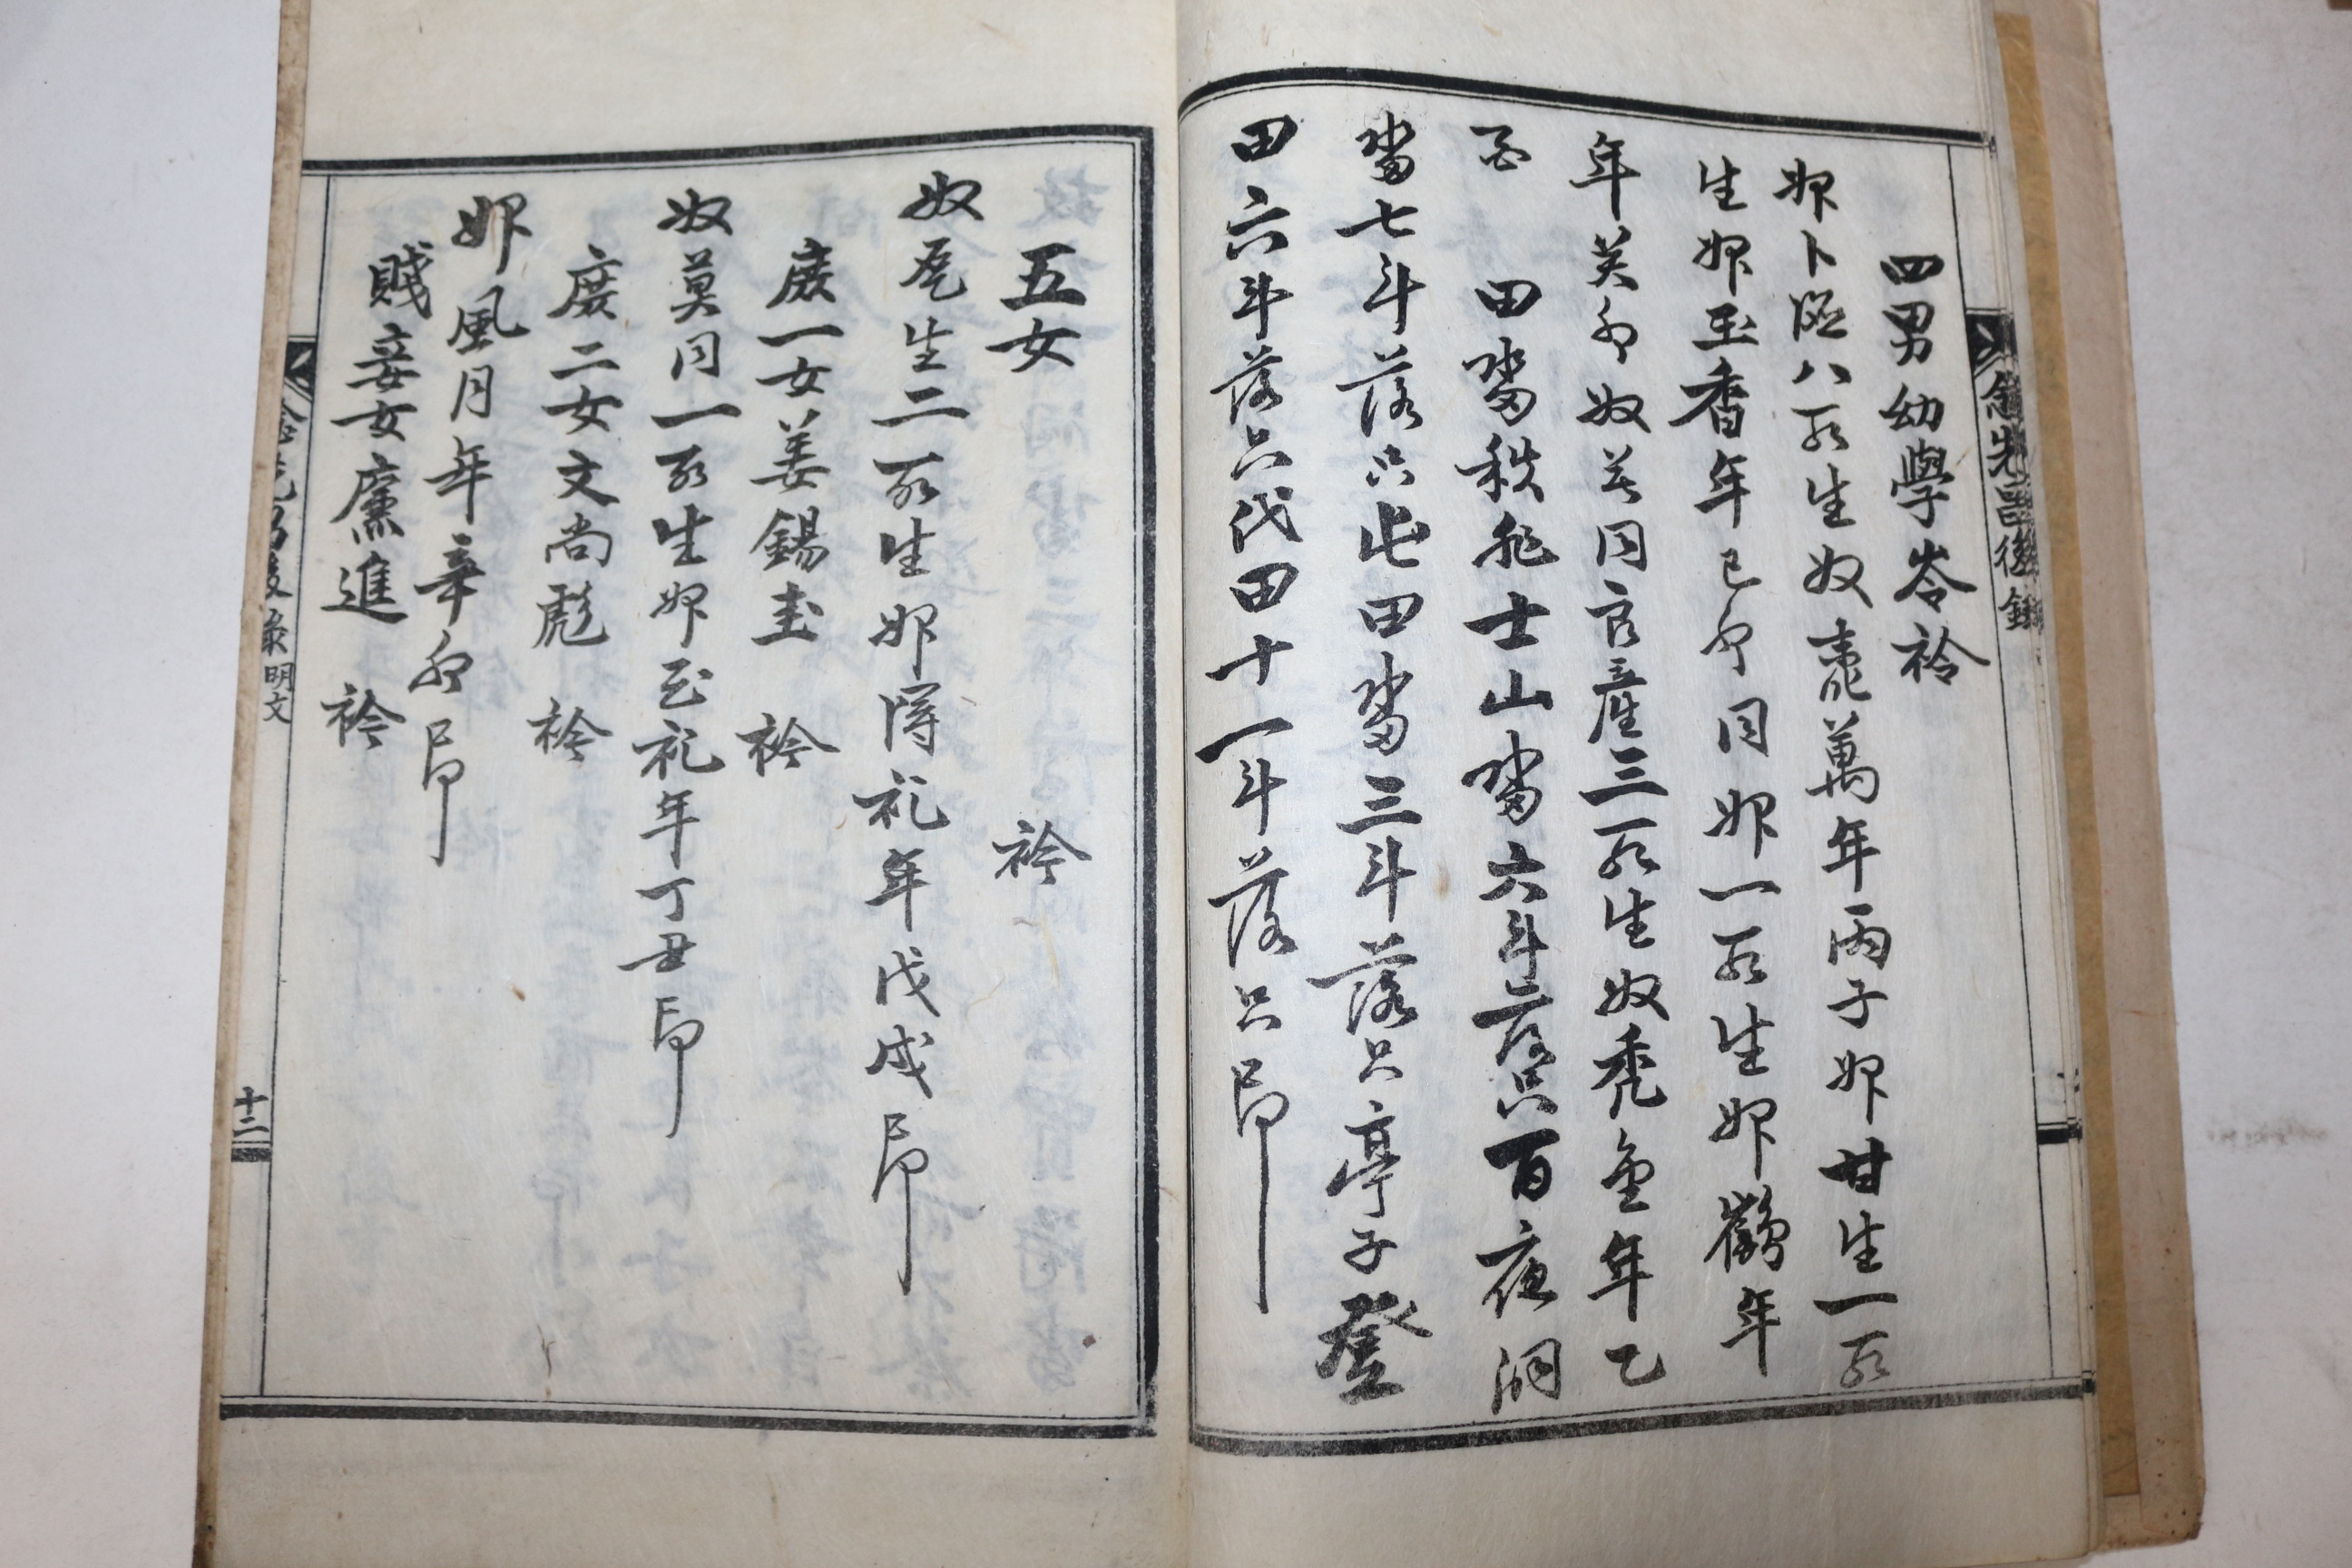 四男幼學岑衿
婢卜德八所生奴壽萬年丙子婢甘生一所
生婢玉香年己卯同婢一所生婢鶴年
年癸卯奴 同 産三所生奴禿金年乙
田畓秩 士山畓六斗落只百夜洞
畓七斗落只 田畓三斗落只亭子登
田六斗落只代田十一斗落只印
五女 衿
奴 生二所生婢 礼年戊戌印
庶一女姜錫圭 衿
奴莫同一所生婢 礼年丁丑印
庶二女文尚彪 衿
婢風月年辛卯印
賤妾女廌進 衿
後錄
後錄 明文
十二